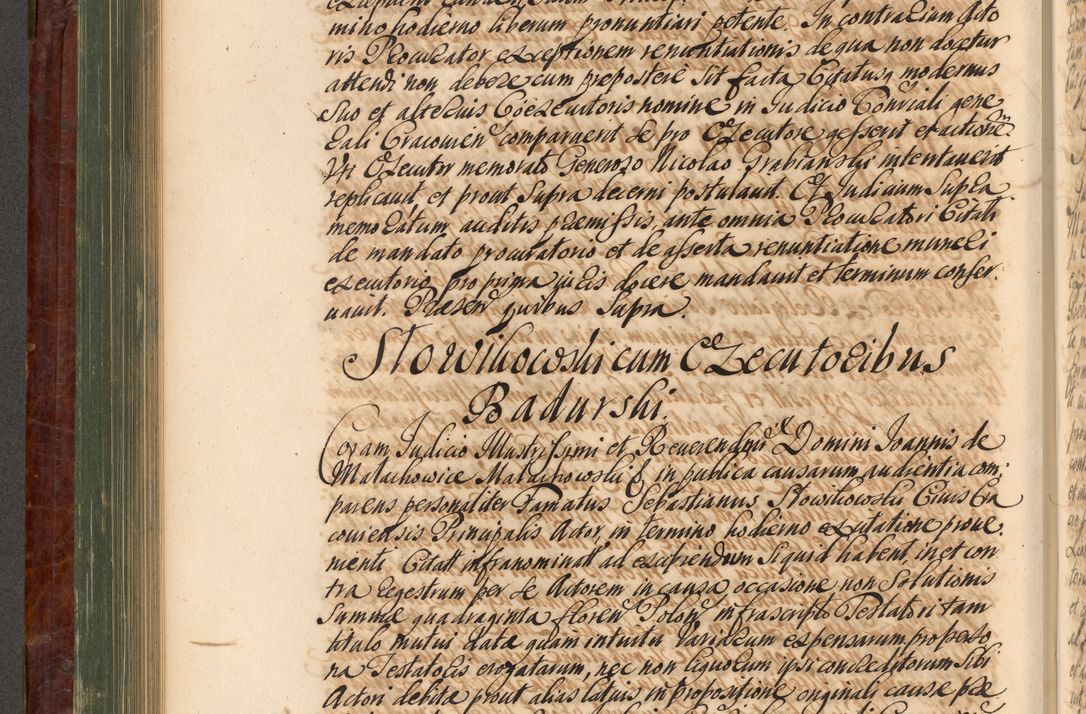 mino hodierno liberum pronuntiari petente. In contrarium Acto
ris Procurator exceptionem renuntiationis de qua non docetur
attendi non debere cum prepostere sit facta Citatusq modernus
suo et alterius Coexecutoris nomine in Iudicio Consiali gene
rali Cracovien comparuerit se pro Executore gesserit et actionem
Uti Executor memorato Generoso Nicolao Grabianski intentaverit
replicavit et prout supra decerni postulavit. Et Iudicium supra
memoratum auditis præmissis, ante omnia Procuratori Citati
de mandato procuratorio et de asserta renuntiatione muneri
executorio pro prima iuris docere mandavit et terminum conser
vavit. Præsen quibus supra.
Slowikowski cum Executoribus
Badurski.
Coram Iudicio Illustrissimi et Reverendissimi Domini Ioannis de
Małachowice Małachowski & in publica causarum audientia com
parens personaliter Famatus Sebastianus Słowikowski Civis Cra
coviensis Principalis Actor, in termino hodierno ex citatione prove
nienti Citatt infranominatt ad excipiendum siquid habent in et con
tra Regestrum per se Actorem in causa occasione non solutionis
summæ quadraginta floren Polon infrascripto Testatori tam
titulo mutui datæ quam intuitu variarum expensarum pro perso
na Testatoris erogatarum, nec non liquorum ipsi concreditorum sibi
Actori debita prout alias latius in propositione originali causæ præ